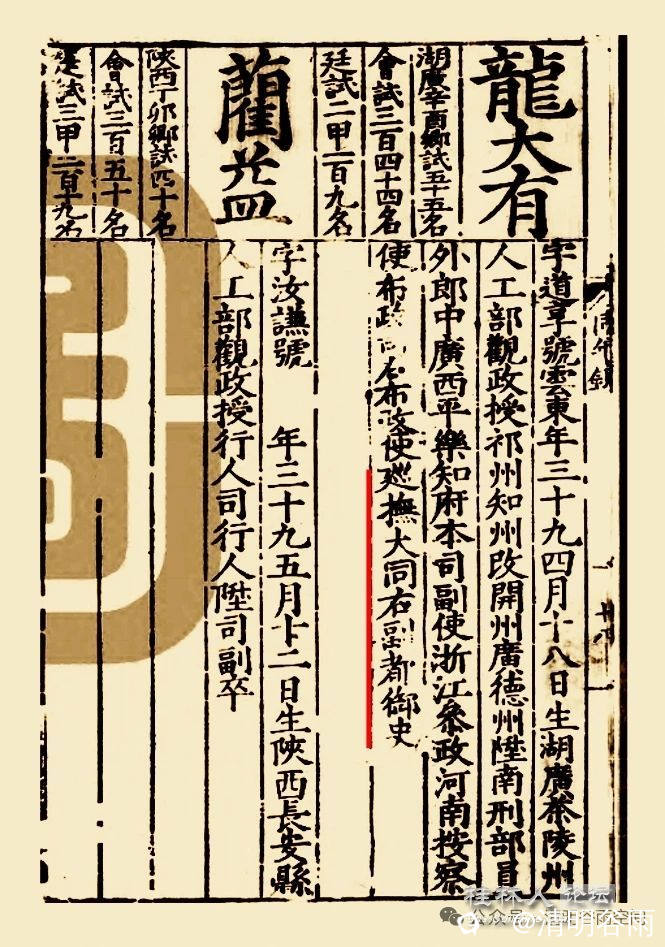 同年錄
龍大有
湖廣辛酉鄉試五十五名
會試三百四十四名
廷試二甲一百九名
字道亨號雲東年三十九四月十八日生湖廣茶陵州
人工部觀政授祁州知州改開州廣德州陞南刑部員
外郎中廣西平樂知府本司副使浙江參政河南按察
使布政布政使廵撫大同右副都御史
藺
陝西丁卯鄉試四十名
會試三百五十名
廷試三甲二百十九名
字汝讌號 年三十九五月十二日生陝西長安縣
人工部觀政授行人司行人陞司副卒
桂林人论坛
公众号
@清明谷雨